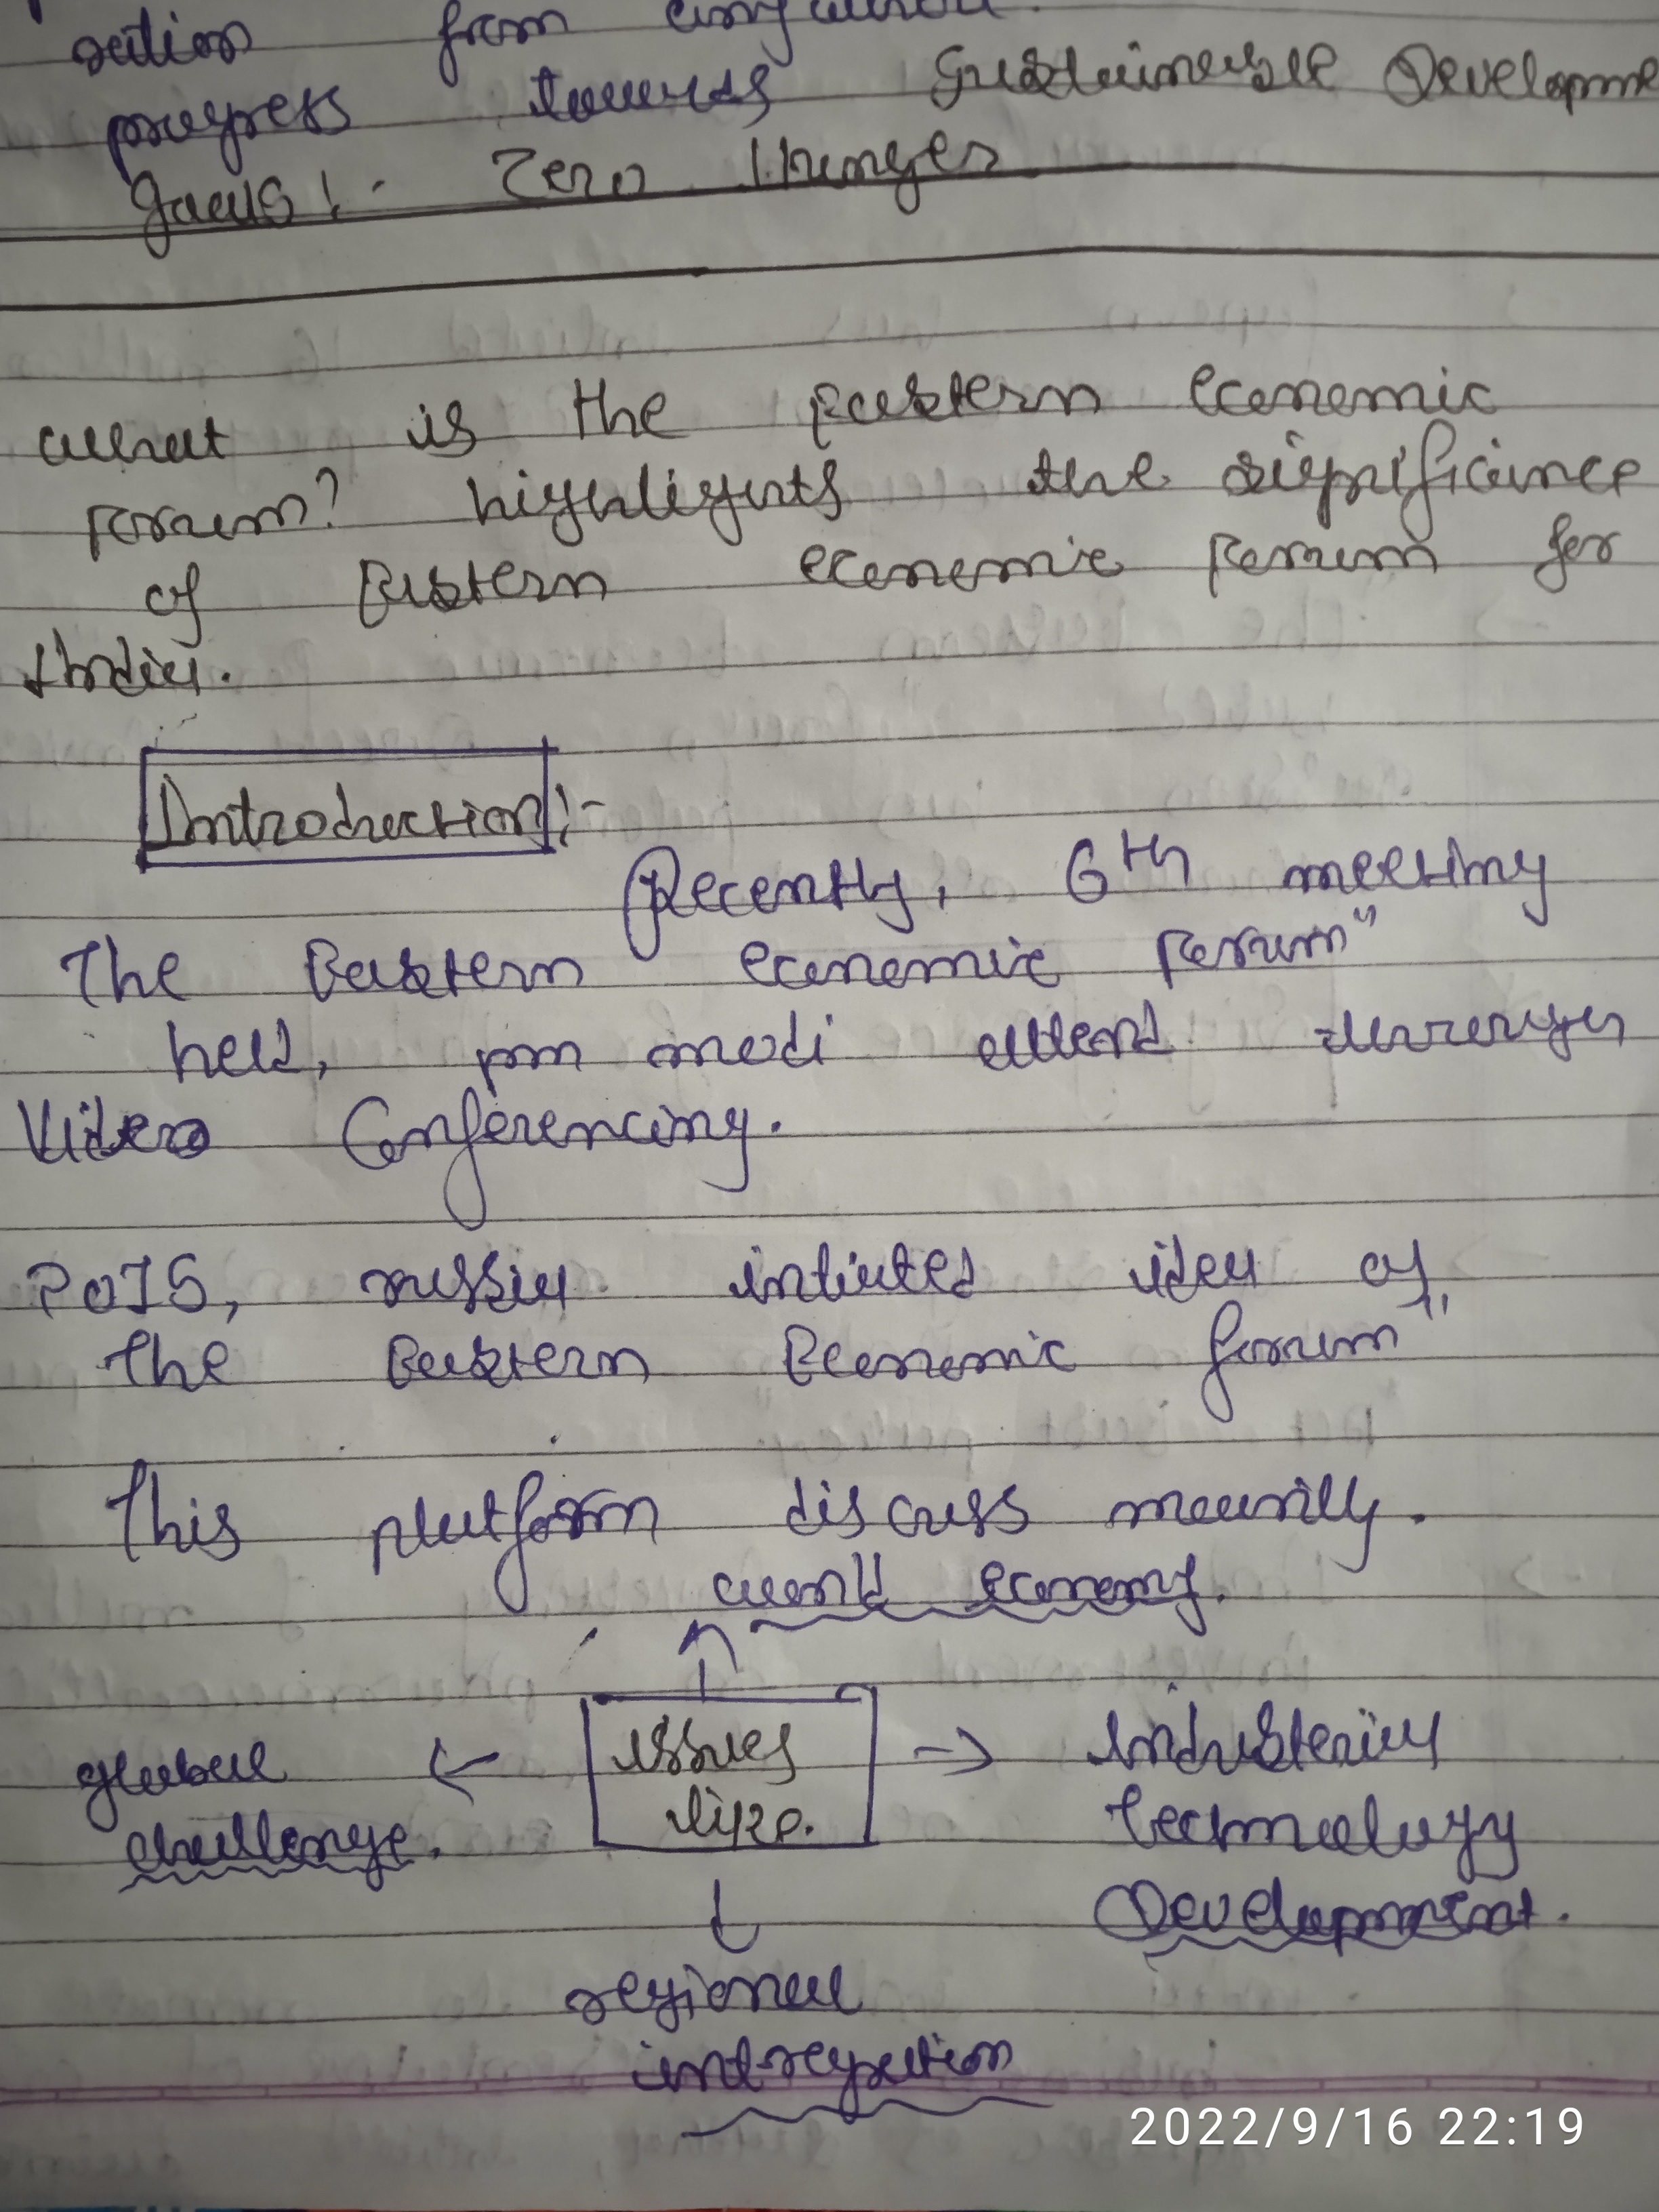 progress towards Sustainable Developme
goals :- Zero Hunger
what is the Eastern economic
Forum? highlights the significance
of Eastern economic Forum for
India.
Introduction :-
Recently, 6th meeting
The Eastern economic Forum"
held, pm modi attend through
Video Conferencing.
2015, russia intiated idea of
The Eastern Economic forum"
This platform discuss mainlly.
world economy.
issues
like.
global
challenge.
Industerial
technology
Development.
regional
intregation
2022/9/16 22:19